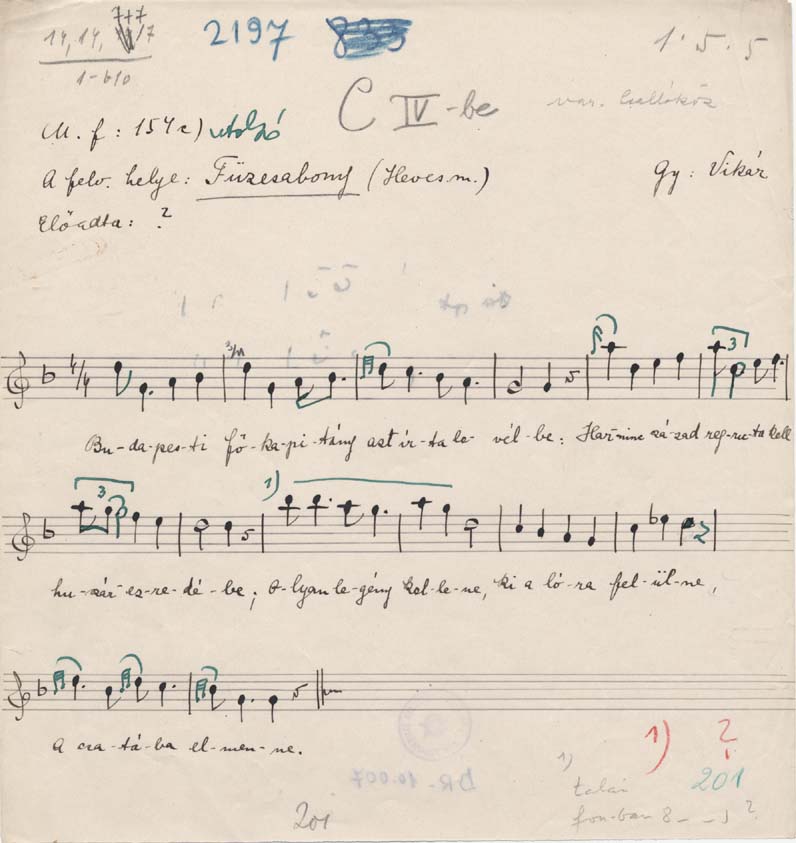 14, 14, 7+7/7
1-b10
2197 833
1. 5. 5
C IV-be
var. Csallóköz
M. f: 154c) utolsó
A felv. helye: Füzesabony (Heves m.)
Gy: Vikár
Előadta: ?
4/4 3 3
Bu-da-pes-ti fő-ka-pi-tány azt ír-ta le- vél-be: Har-minc szá-zad reg-ru-ta kell
3 1)
hu-szár ez-re-dé-be; O-lyan le-gény kel-le-ne, ki a ló-ra fel-ül-ne,
A csa-tá-ba el-men-ne.
1) ?
201
DR-10.007
1)
talán
fon-ban 8 - - ?
201